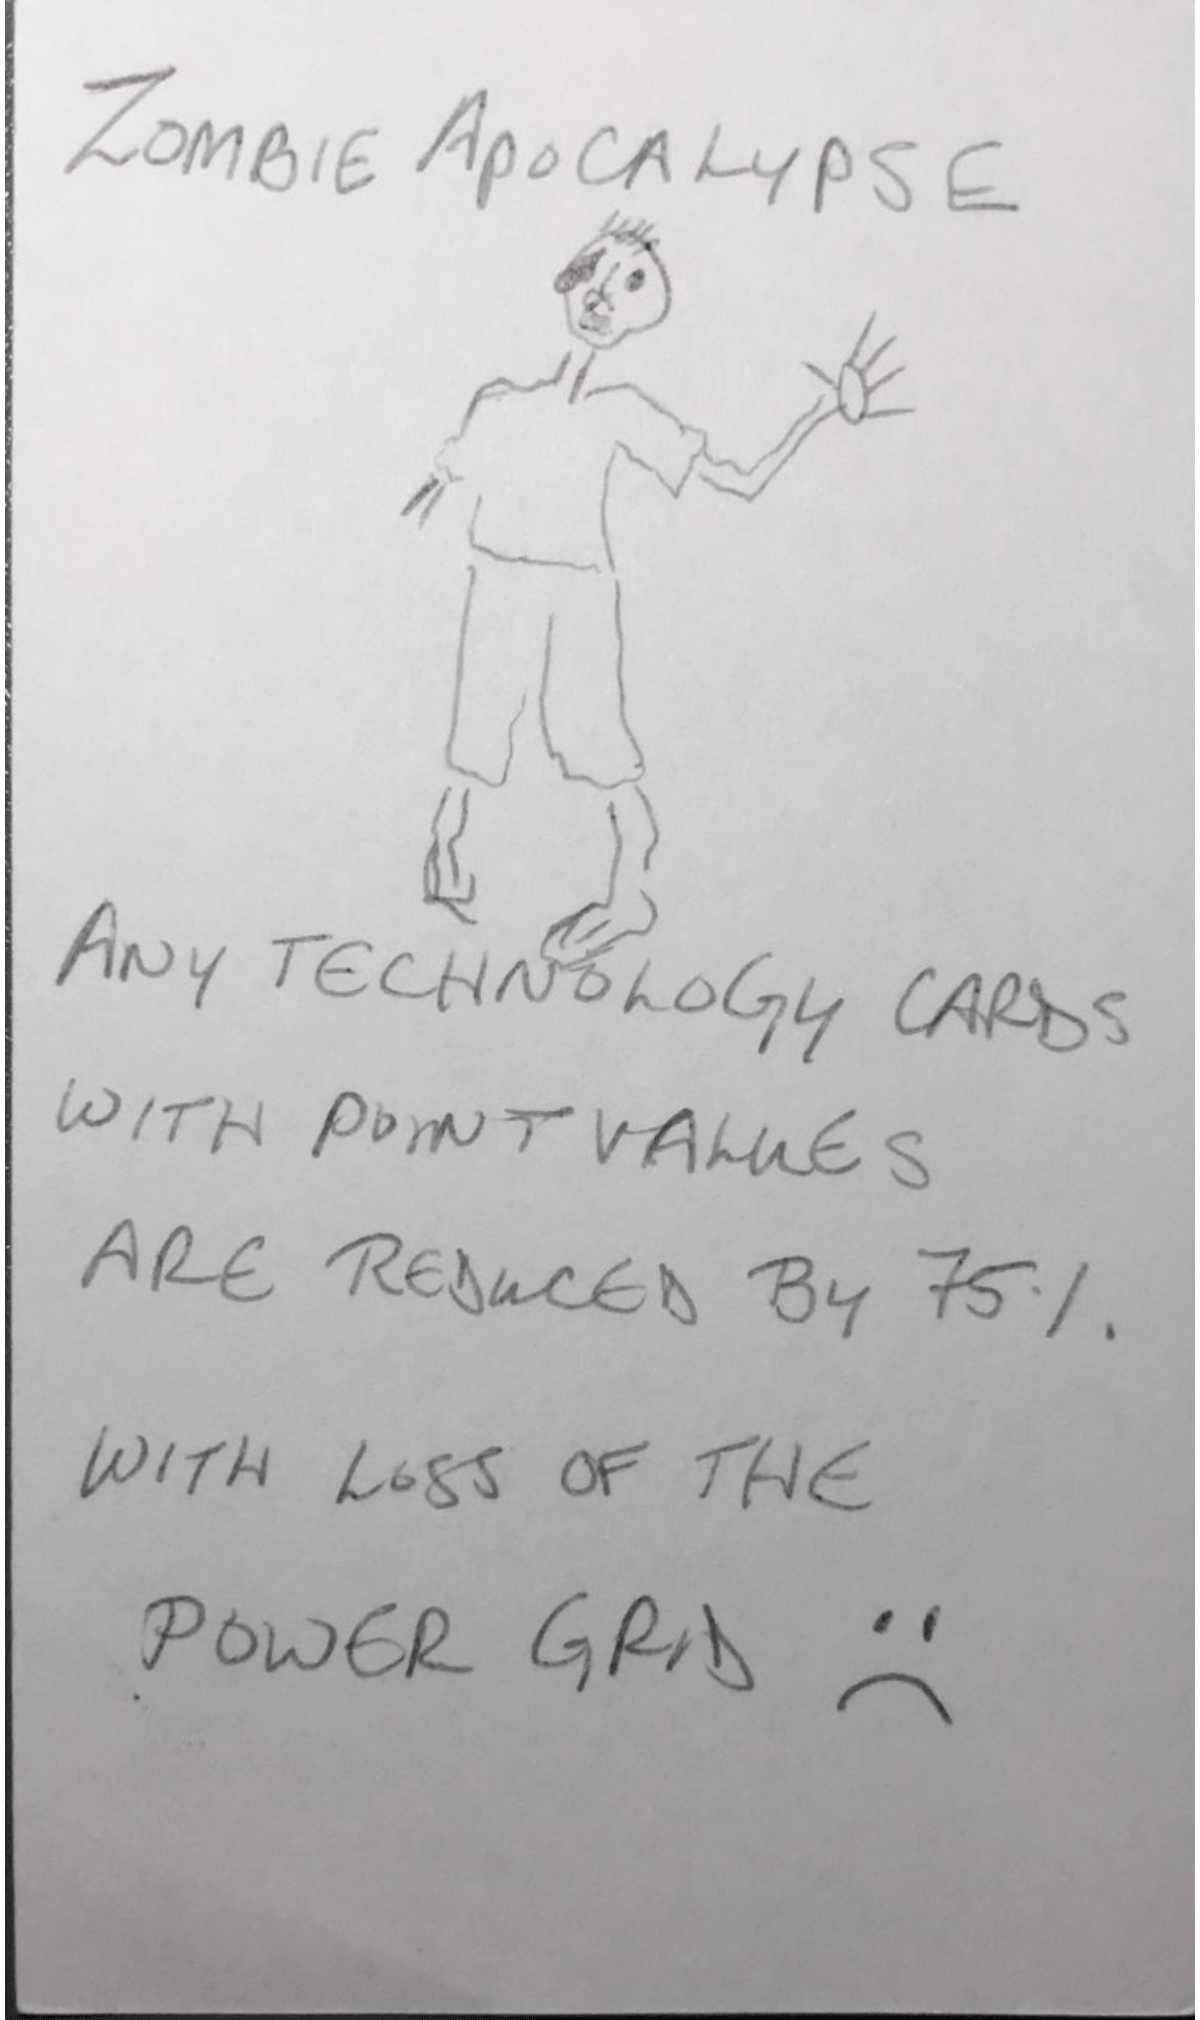 ZOMBIE APOCALYPSE
ANY TECHNOLOGY CARDS
WITH POINT VALUES
ARE REDUCED BY 75%.
WITH LOSS OF THE
POWER GRID :(